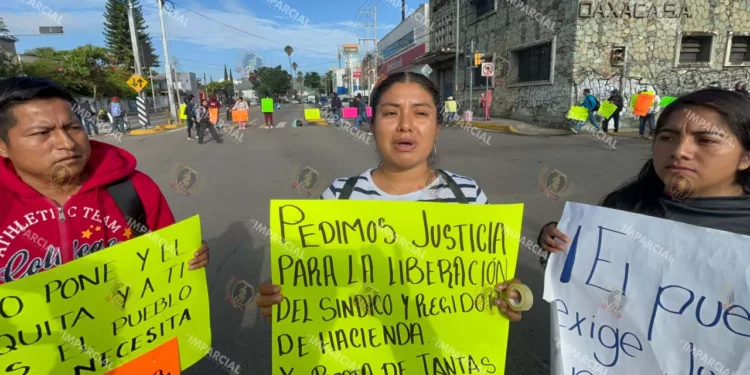 OAXACASA
IMPARCIAL
ATHLETIC TEAM
PONE Y EL
QUITA Y A TI
EL PUEBLO
NECESITA
PEDIMOS JUSTICIA
PARA LA LIBERACIÓN
DEL SINDICO Y REGIDOR
DE HACIENDA
Y BASTA DE TANTAS
¡El pueb
exige